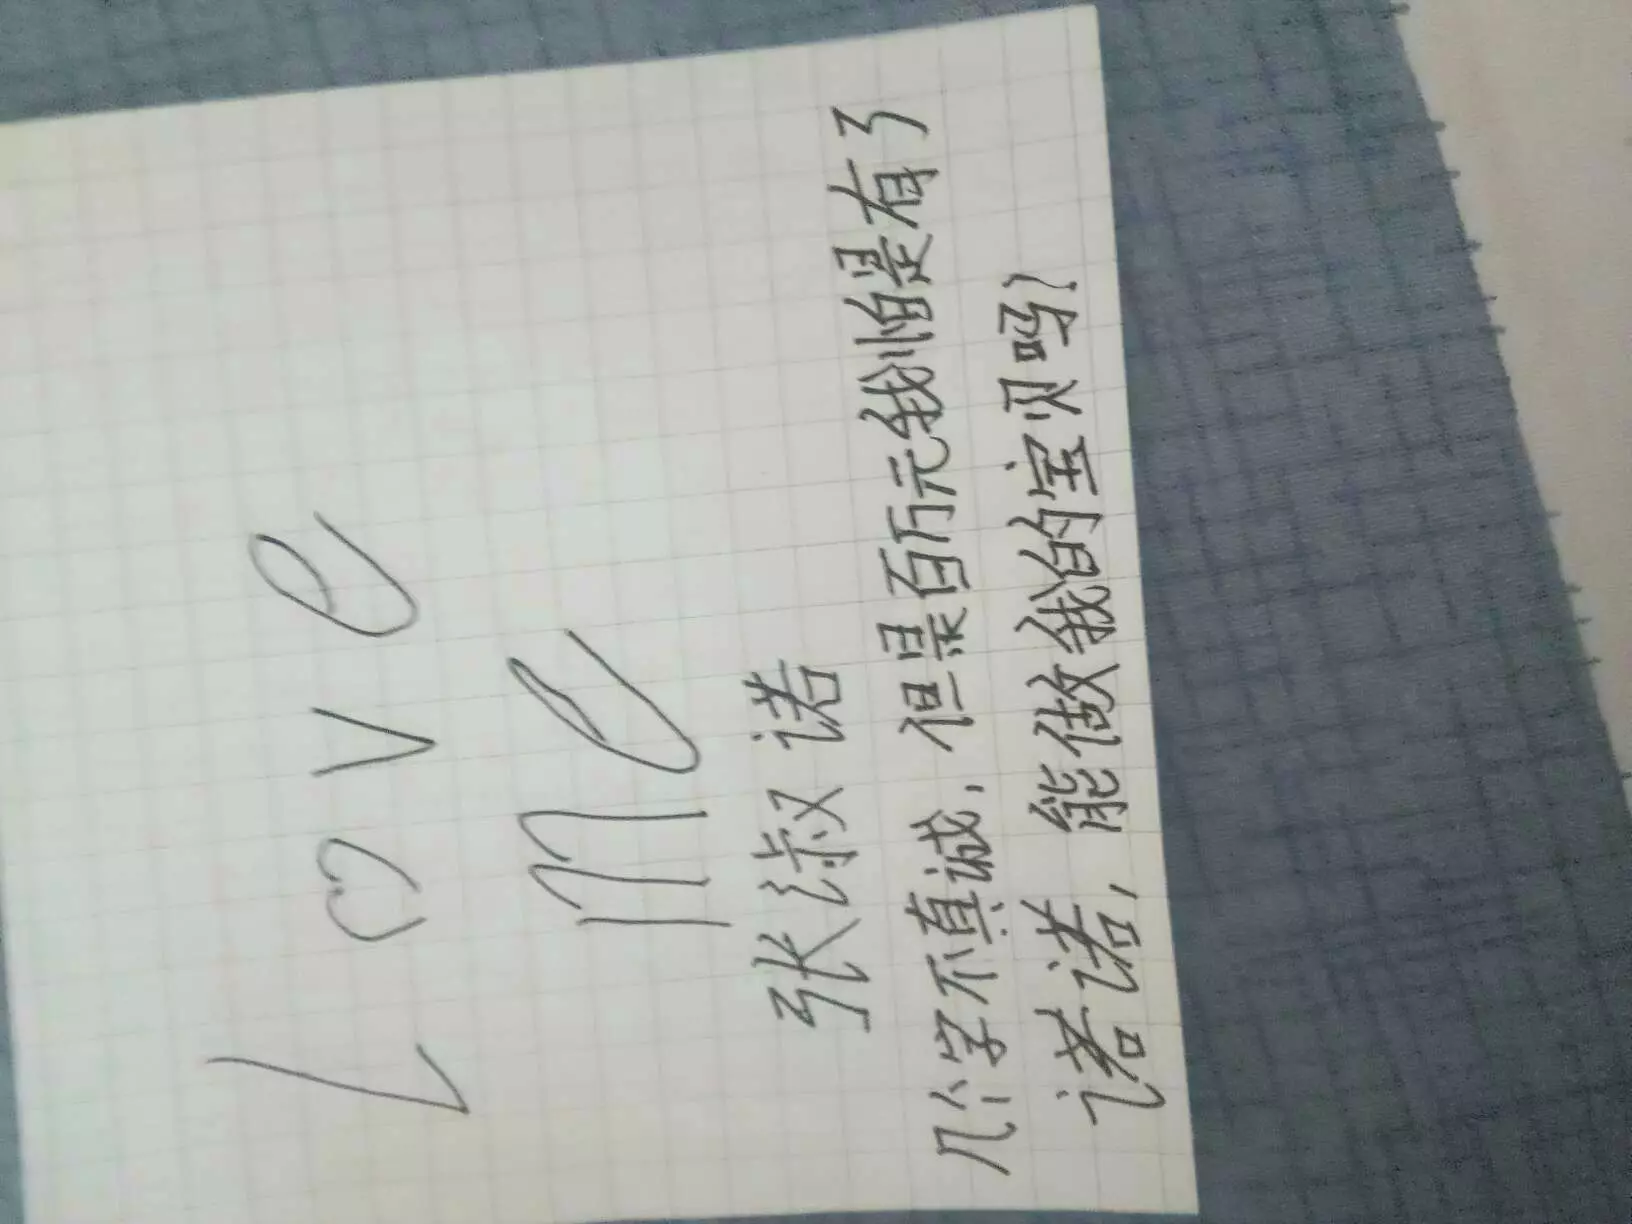 Love
me
张淑诺
几个字不真诚，但是百万元我怕是有了
诺诺，能做我的宝贝吗！